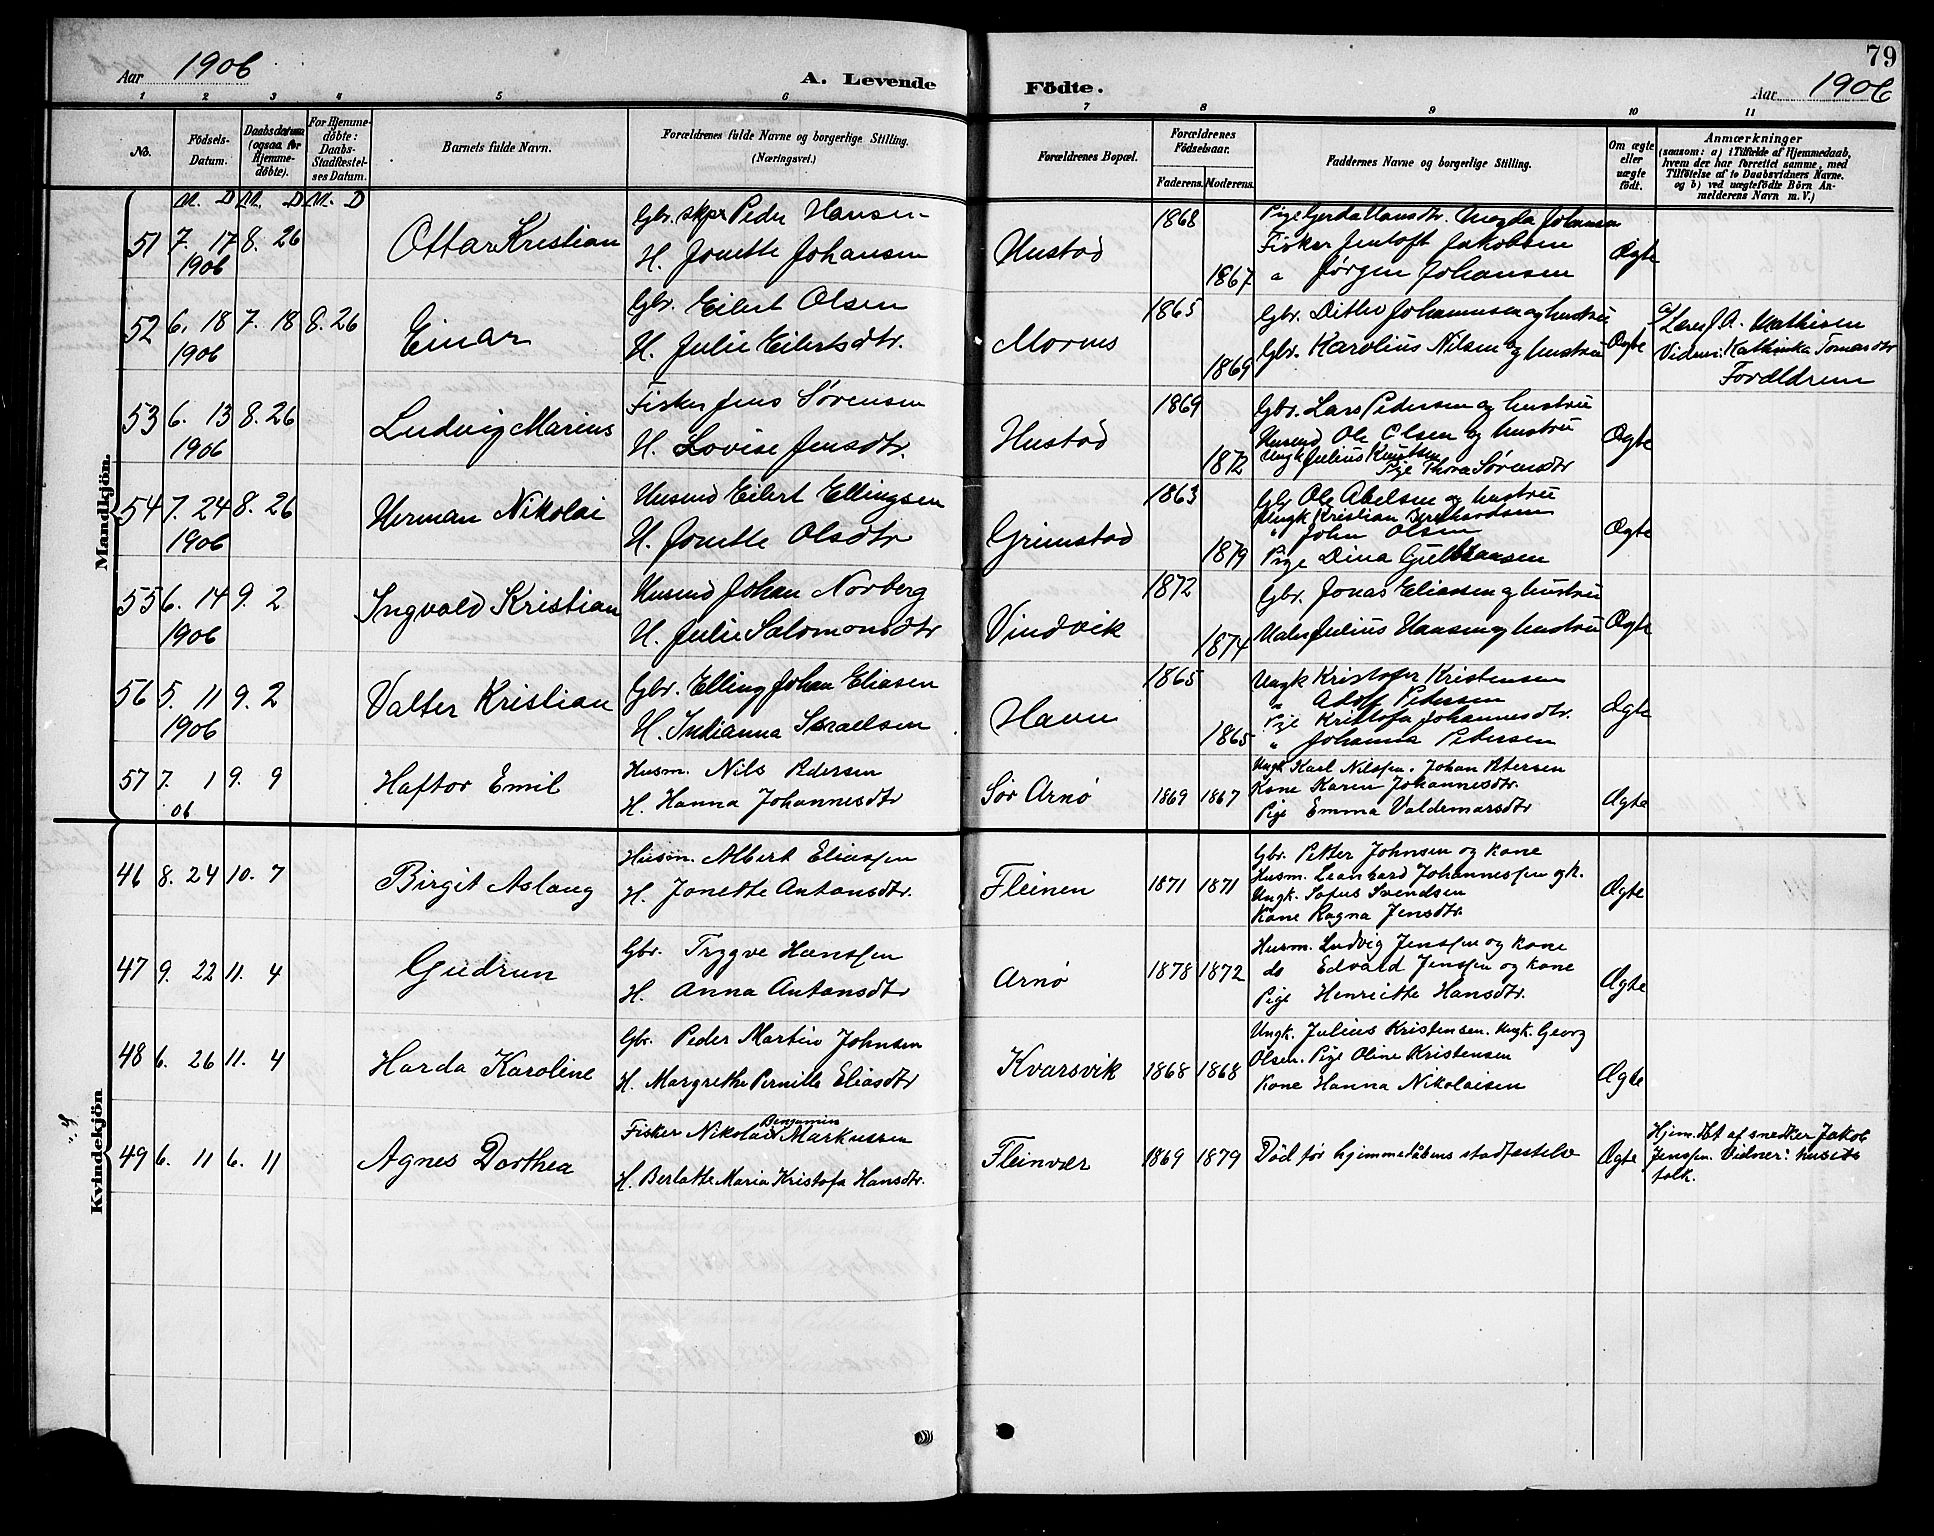 79
Aar 1906
A. Levende
Födte.
Aar 1906
1 2 3 4 5 6 7 8 9 10 11
No.
Födsels-Datum.
Daabsdatum (ogsaa for Hjemmedøbte).
For Hjemmedøbte: Daabs-Stadfæstelses Datum.
Barnets fulde Navn.
Forældrenes fulde Navne og borgerlige Stilling.
(Næringsvei.)
Forældrenes Bopæl.
Forældrenes Födselsaar.
Faderens. Moderens.
Faddernes Navne og borgerlige Stilling.
Om ægte eller uægte födt.
Anmærkninger
(saasom: a) i Tilfælde af Hjemmedaab, hvem der har forrettet samme, med Tilföielse af to Daabsvidners Navne. og b) ved uægtefödte Börn Anmelderens Navn m. V.)
M. D M. D M. D
Mandkjön.
51 7. 17 8. 26 Ottar Kristian Gbr. skpr Peder Hansen 1868 Pige Gerda Hansdtr. Magda Johansen
1906 H. Jonette Johansen Hustad Fisker Jentoft Jakobsen Ægte
1867 " Jørgen Johansen
52 6. 18 7. 18 8. 26 Einar Gbr. Eilert Olsen Mornes 1865 Gbr. Ditlev Johannesen og hustru Ægte a/ Lærer J. A. Mathisen
1906 H. Julie Eilertsdtr. 1869 Gbr. Karolius Nilsen og hustru Vidner: Kathinka Tomasdtr
Forældrene
53 6. 13 8. 26 Ludvig Marius Fisker Jens Sørensen Hustad 1869 Gbr. Lars Pedersen og hustru Ægte
1906 H. Lovise Jensdtr. Husmd Ole Olsen og hustru
1872 Ungk Julius Knutsen
Pige Thora Sørensdtr
54 7. 24 8. 26 Herman Nikolai Husmd Eilert Ellingsen Grimstad 1863 Gbr Ole Abelsen og hustru Ægte
1906 H. Jonette Olsdtr Ungk Kristian Bernhardsen
" John Olsen
1879 Pige Dina Gulbransen
55 6. 14 9. 2 Ingvald Kristian Husmd Johan Norberg Vindvik 1872 Gbr. Jonas Eliassen og hustru Ægte
1906 H. Julie Salomonsdtr 1874 Maler Julius Hansen og hustru
56 5. 11 9. 2 Valter Kristian Gbr. Elling Johan Eliasen Havn 1865 Ungk Kristofer Kristensen Ægte
1906 H. Indianna Israelsen " Adolf Pedersen
Pige Kristofa Johannesdtr.
1865 " Johanna Petersen
57 7. 1 9. 9 Haftor Emil Husm. Nils Pedersen Sør Arnø 1869 1867 Ungk Karl Nilssen. Johan Petersen Ægte
06 H. Hanna Johannesdtr Kone Karen Johannesdtr.
Pige Emma Valdemarsdtr
Kvindekjön
46 8. 24 10. 7 Birgit Aslaug Husm. Albert Eliassen Fleinen 1871 1871 Gbr. Petter Johnsen og kone Ægte
H. Jonette Antonsdtr. Husm. Leonhard Johannessen og k.
Ungk. Sofus Svendsen
Kone Ragna Jensdtr.
47 9. 22 11. 4 Gudrun Gbr. Trygve Hanssen Arnø 1878 1872 Husm. Ludvig Jenssen og kone Ægte
H. Anna Antonsdtr do Edvald Jenssen og kone
Pige Henriette Hansdtr.
48 6. 26 11. 4 Harda Karoline Gbr. Peder Martin Johnsen Kvarsvik 1868 1868 Ungk. Julius Kristensen. Ungk. Georg Ægte
H. Margrethe Pernille Eliasdtr Olsen. Pige Oline Kristensen
Kone Hanna Nikolaisen
49 6. 11 6. 11 Agnes Dorthea Fisker Nikolai Benjamin Markussen Fleinvær 1869 1879 Død før hjemmedåbens stadfæstelse Ægte Hjem.dbt af snedker Jakob
H. Berlotte Maria Kristofa Hansdtr. Jenssen. Vidner: husets
folk.